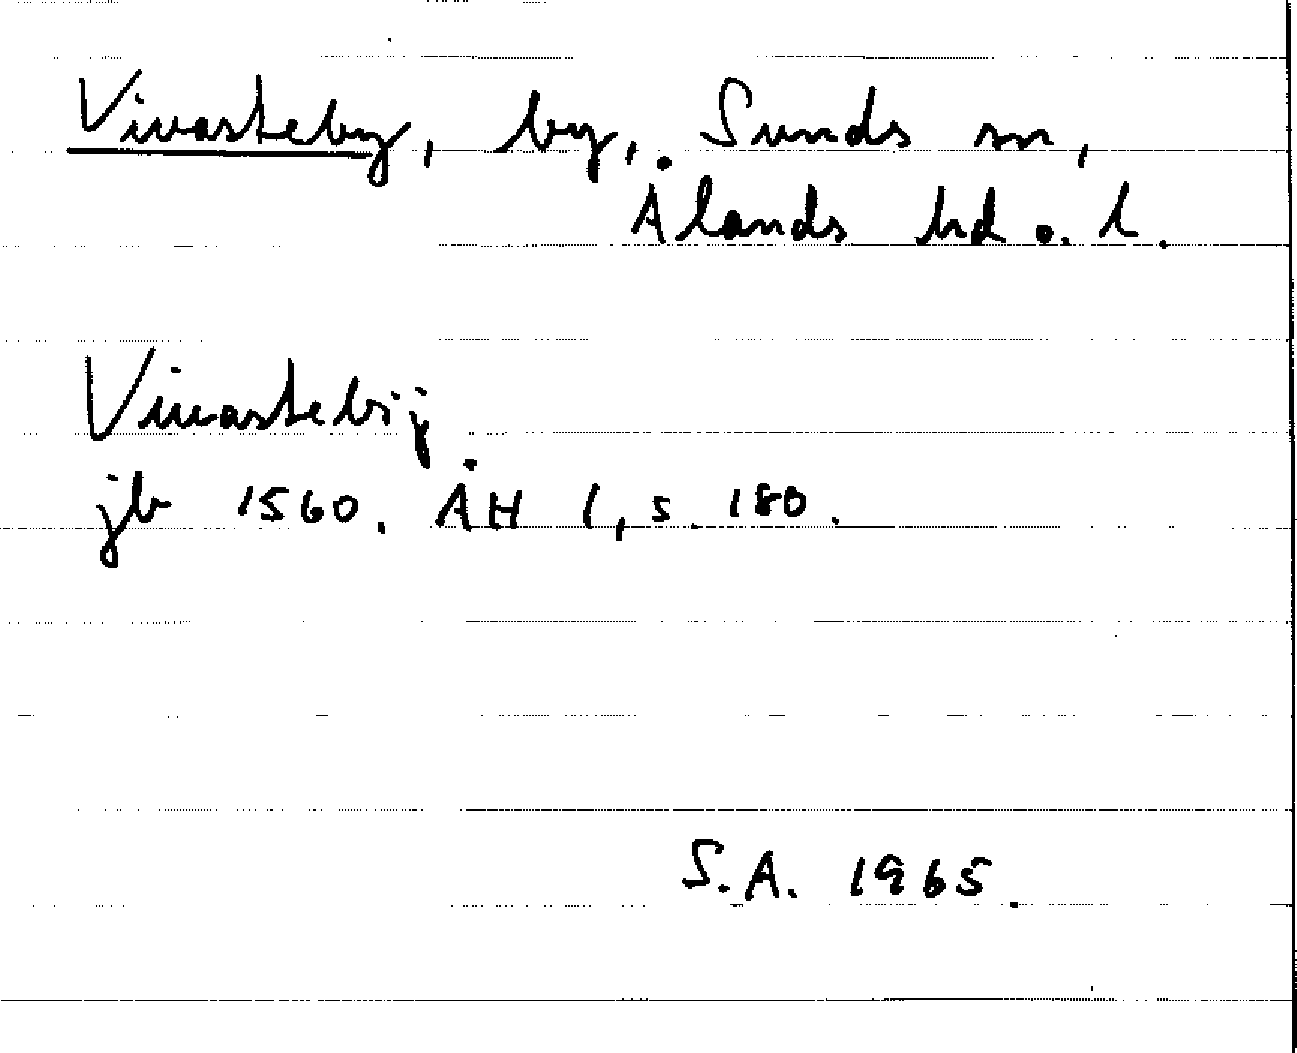 Vivasteby, by, Sunds sn,
Ålands hd o. l.
Viuastebij
jb 1560. ÅH 1, s. 180.
S.A. 1965.